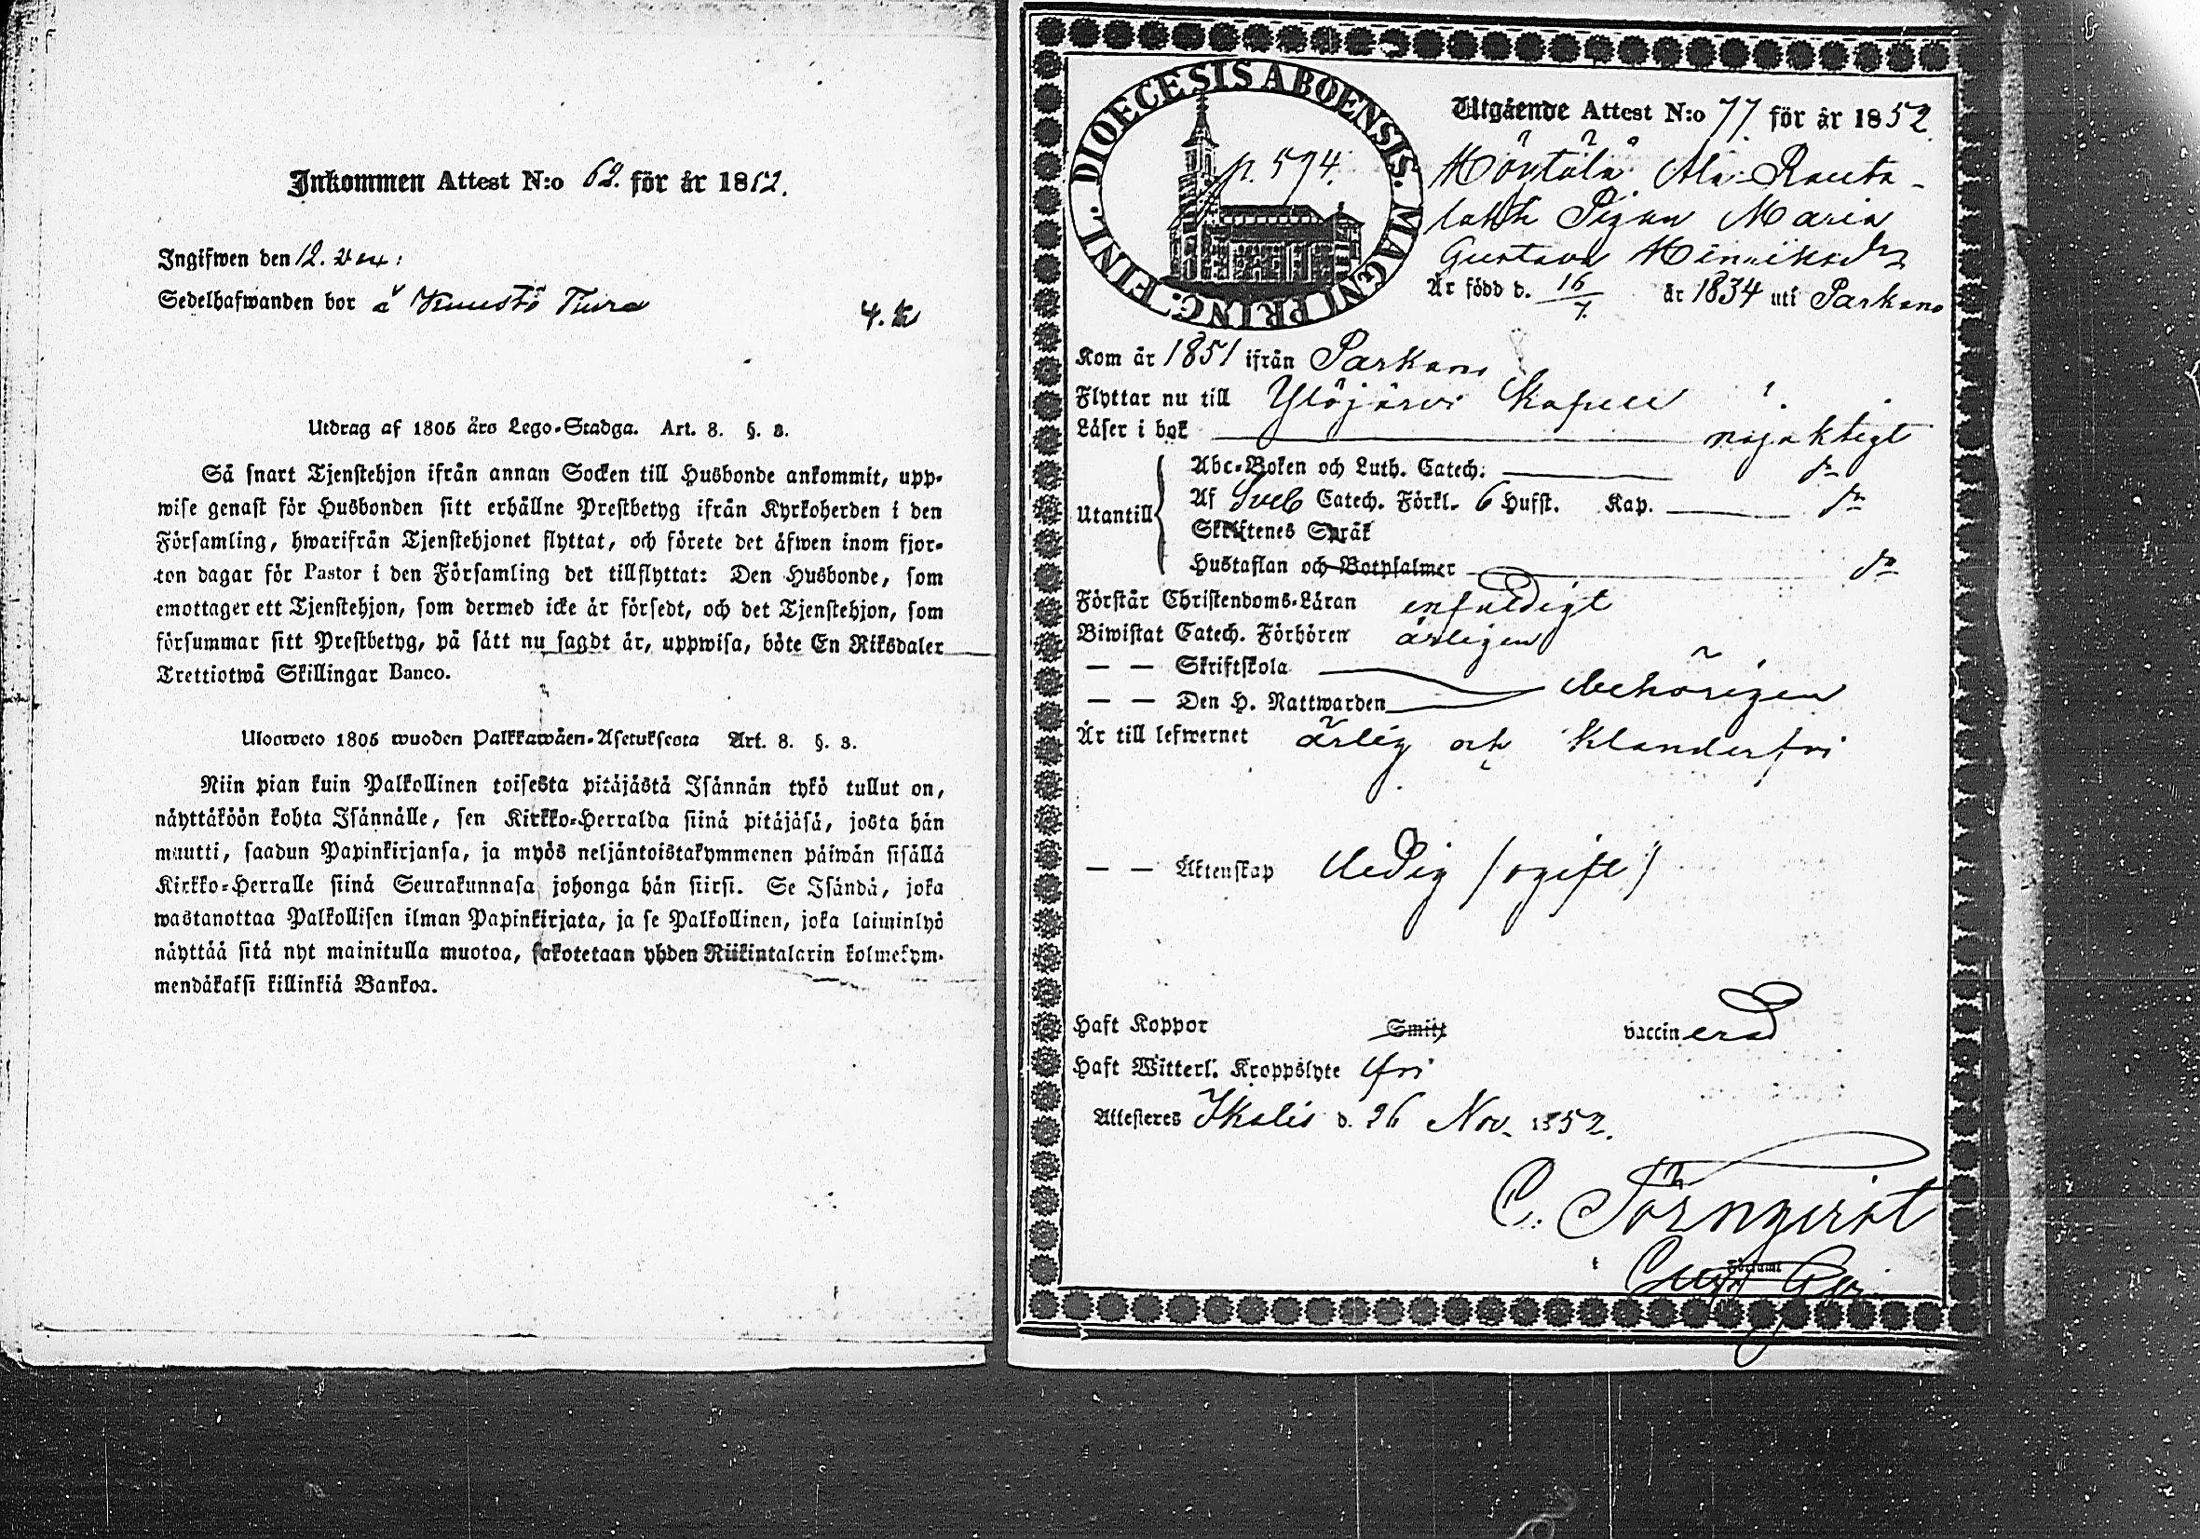 Inkommen Attest N:o 62. för år 1852.
Ingifwen den 12. Dec:
Sedelhafwanden bor å Kuusto Tura
4. k
Utdrag af 1805 års Lego-Stadga. Art. 8. §. 3.
Så snart Tjenstehjon ifrån annan Socken till Husbonde ankommit, upp-
wise genast för Husbonden sitt erhållne Prestbetyg ifrån Kyrkoherden i den
Församling, hwarifrån Tjenstehjonet flyttat, och förete det äfwen inom fjor-
ton dagar för Pastor i den Församling det tillflyttat: Den Husbonde, som
emottager ett Tjenstehjon, som dermed icke är försedt, och det Tjenstehjon, som
försummar sitt Prestbetyg, på sätt nu sagdt är, uppwisa, böte En Riksdaler
Trettiotwå Skillingar Banco.
Ulosweto 1805 wuoden Palkkawäen-Asetuksesta Art. 8. §. 3.
Niin pian kuin Palkollinen toisesta pitäjästä Isännän tykö tullut on,
näyttäköön kohta Isännälle, sen Kirkko-Herralda siinä pitäjäsä, josta hän
muutti, saadun Papinkirjansa, ja myös neljäntoistakymmenen päiwän sisällä
Kirkko-Herralle siinä Seurakunnasa johonga hän siirsi. Se Isändä, joka
wastanottaa Palkollisen ilman Papinkirjata, ja se Palkollinen, joka laiminlyö
näyttää sitä nyt mainitulla muotoa, sakotetaan yhden Riikintalarin kolmekym-
mendäkaksi killinkiä Bankoa.
DIOECESIS ABOENSIS. MAGNI PRINC: FINL.
p. 594.
Utgående Attest N:o 77. för år 1852.
Höytälä Ala-Rauta-
lahti Pigan Maria
Gustava Henriksdr
Är född d. 16/7. år 1834 uti Parkano
Kom år 1851 ifrån Parkano
Flyttar nu till Ylöjärvi Kapell
Läser i bok nöjaktigt
Utantill
Abc-Boken och Luth. Catech: do
Af Sveb Catech. Förkl. 6 Hufst. Kap. do
Skriftenes Språk
Hustaflan och Botpsalmer do
Förstår Christendoms-Läran enfaldigt
Biwistat Catech. Förhören årligen
— — Skriftskola
— — Den H. Nattwarden behörigen
Är till lefwernet ärlig och klanderfri
— — Äktenskap ledig (ogift)
Haft Koppor Smitt vaccinerad
Haft Witterl. Kroppslyte fri
Attesteres Ikalis d. 26 Nov. 1852.
C. Törnqvist